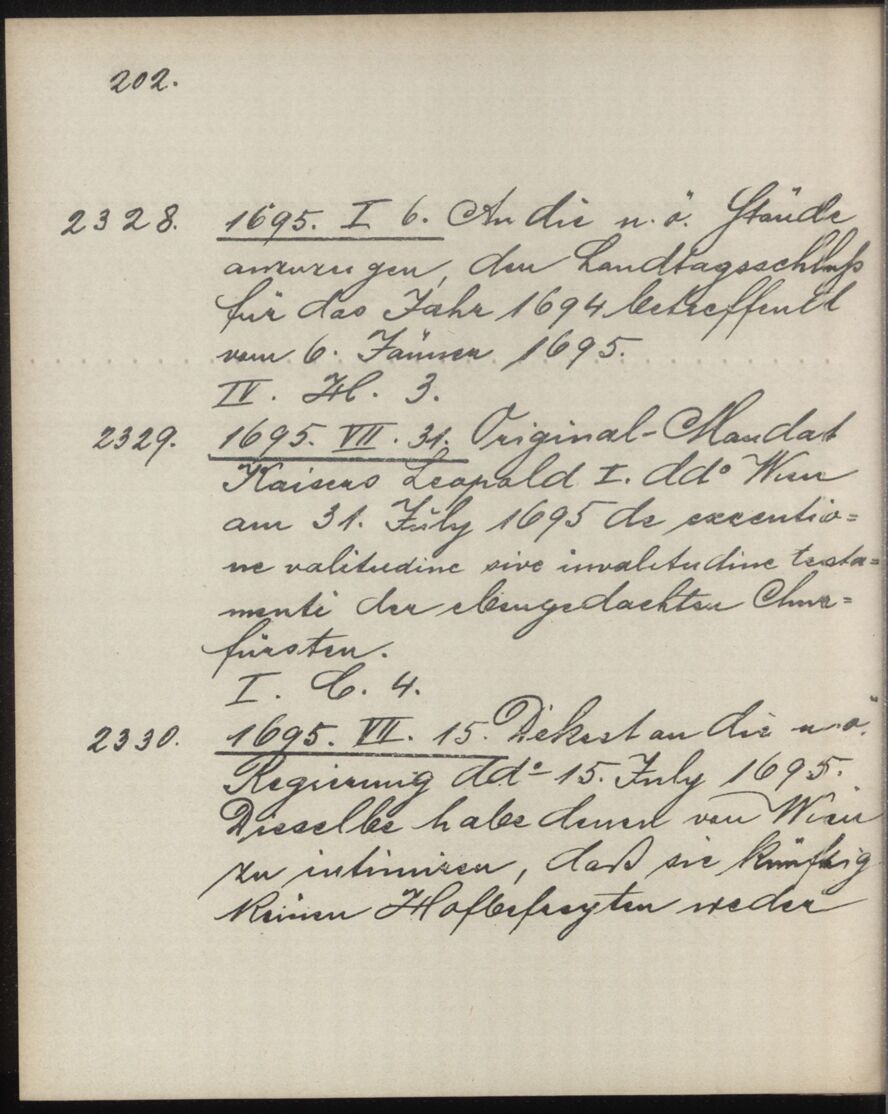 202.
2328. 1695. I 6. An die n. ö. Stände
anzuzeigen, den Landtagsschluß
für das Jahr 1694 betreffend
vom 6. Jänner 1695.
IV. H. 3.
2329. 1695. VII. 31. Original-Mandat
Kaisers Leopold I. ddo Wien
am 31. July 1695 de executio=
ne valitudine sive invalitudine testa=
menti der ebengedachten Chur=
fürsten.
I. C. 4.
2330. 1695. VII. 15. Dekret an die n. ö.
Regierung ddo 15. July 1695.
Dieselbe habe denen von Wien
zu intimiren, daß sie künftig
keinen Hofbefreyten weder